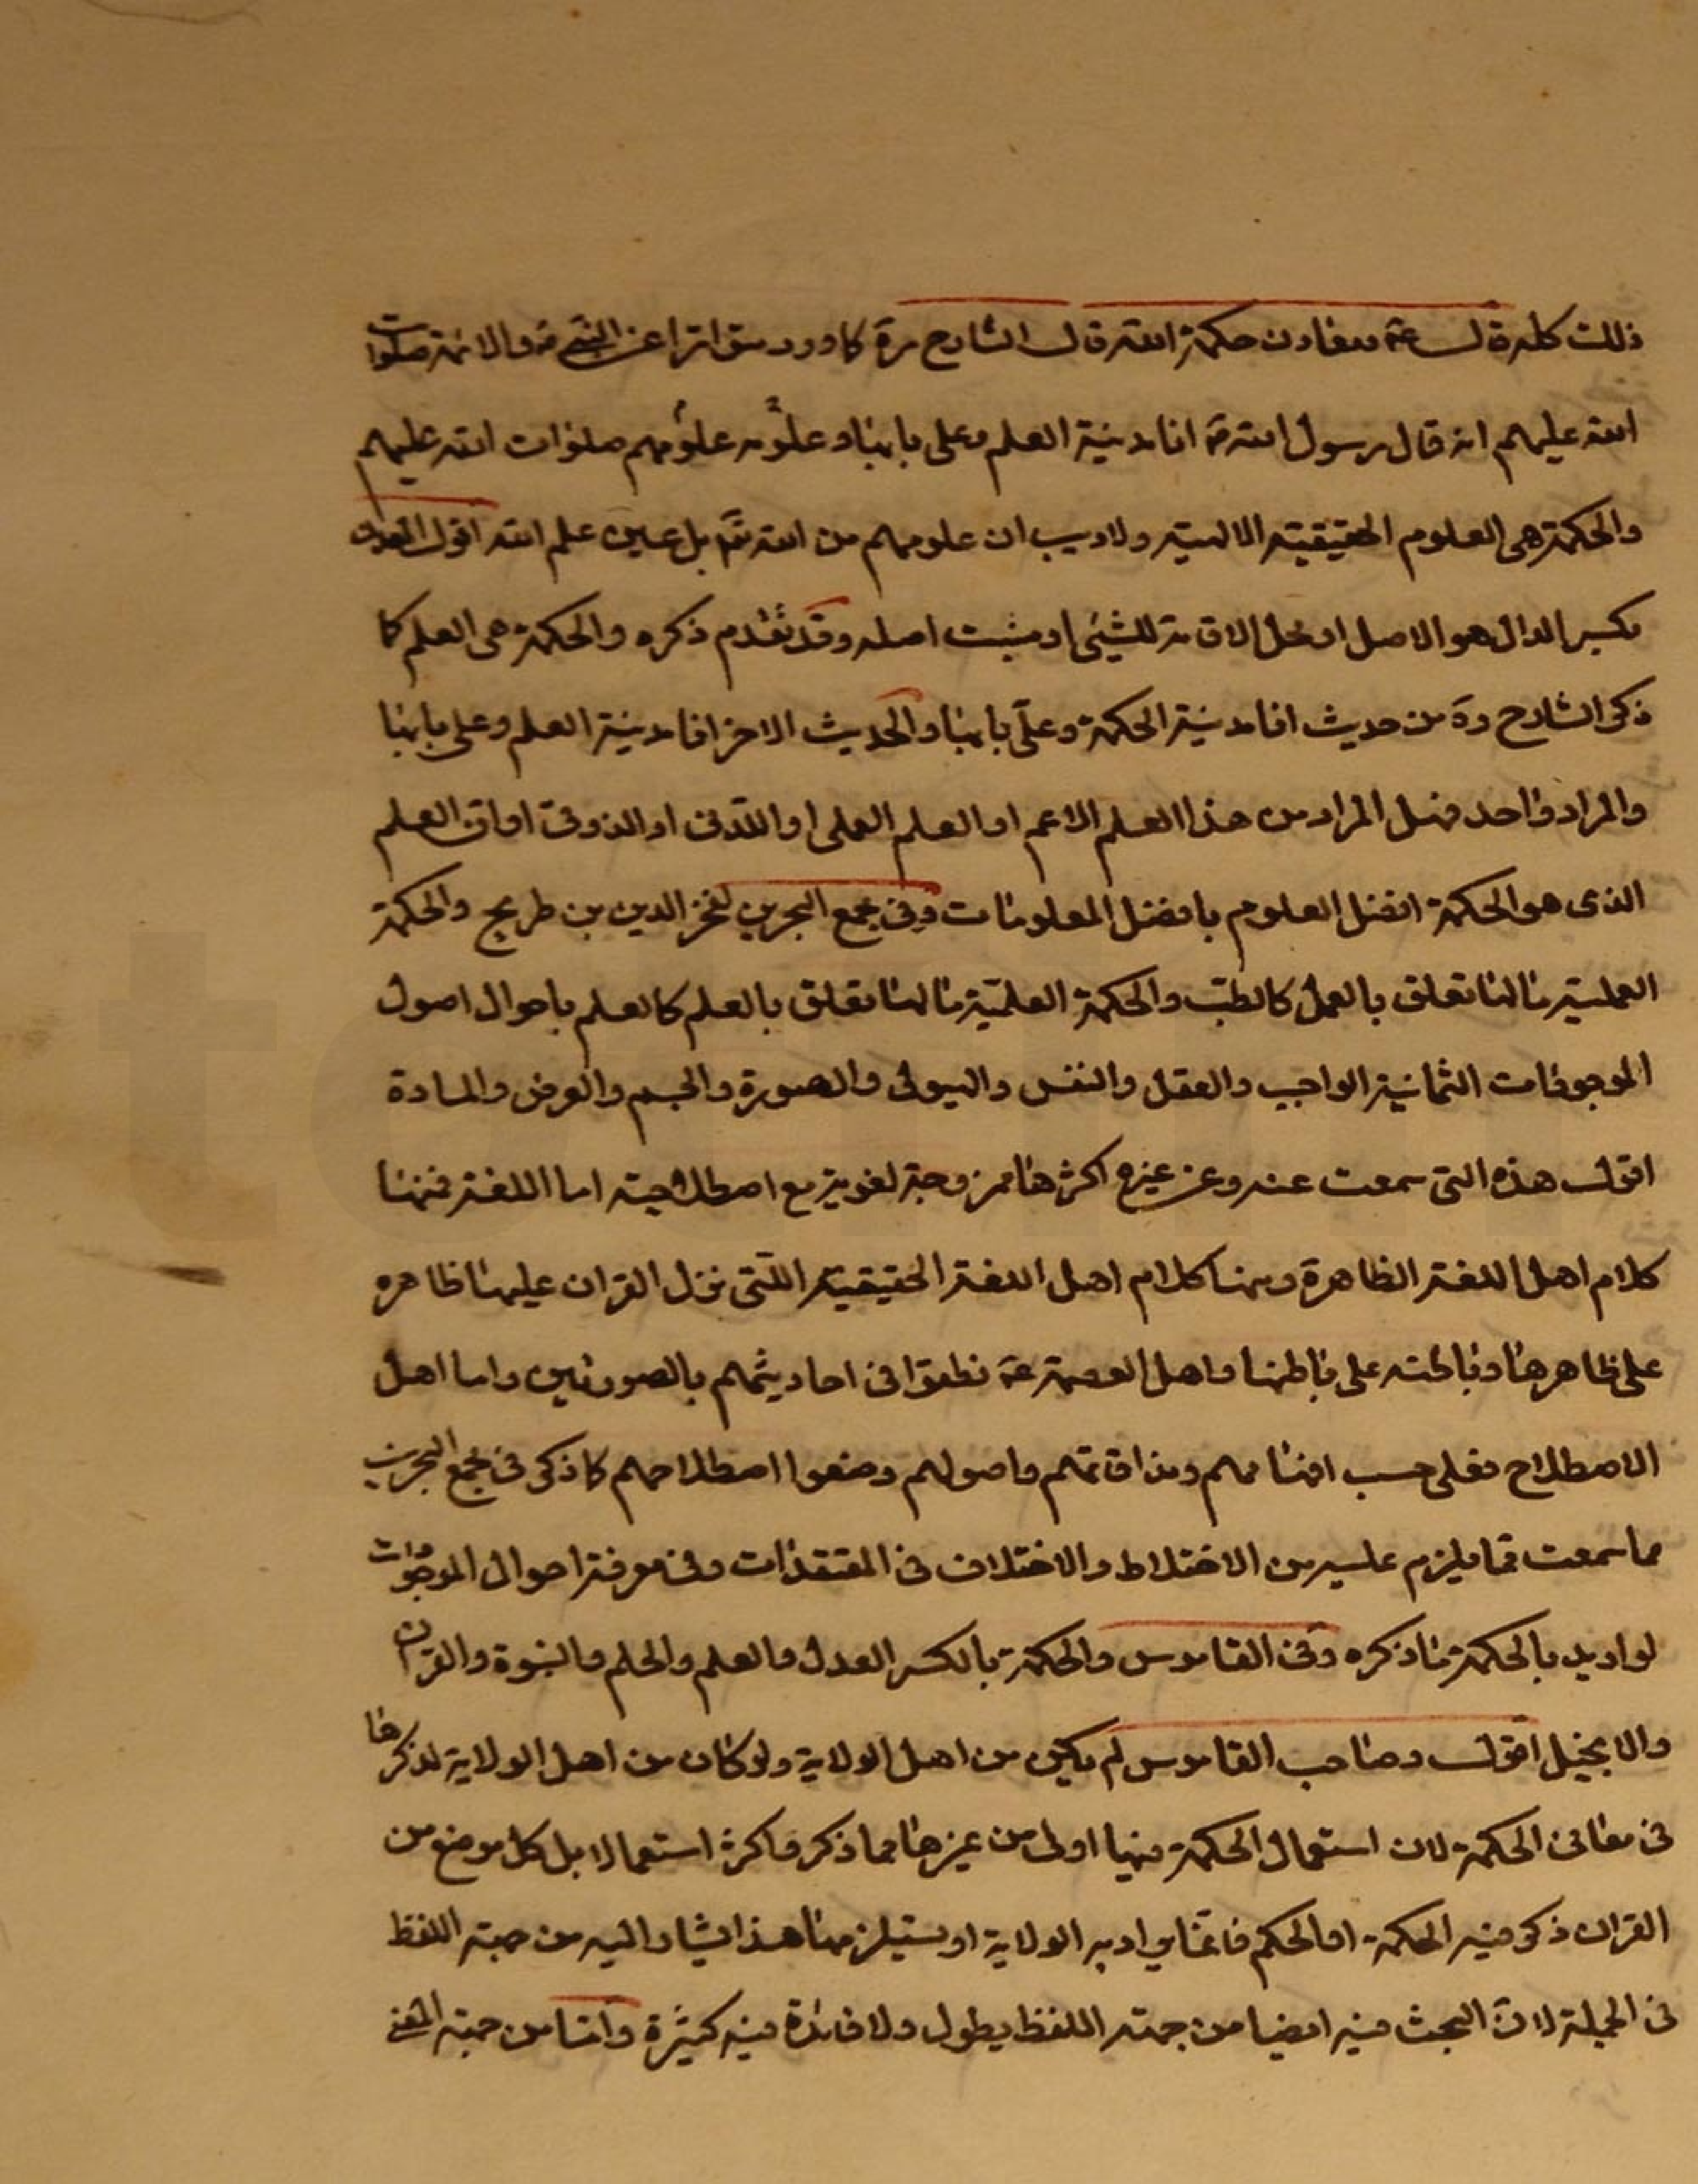 ذلك كله قال ع ومعادن حكمة الله قال الشارح ره كما ورد متواترا عن النبي ص والائمة صلوات
الله عليهم انه قال رسول الله ص انا مدينة العلم وعلى بابها وعلومه علومهم صلوات الله عليهم
والحكمة هى العلوم الحقيقية الالهية ولا ريب ان علومهم من الله تع بل عين علم الله اقول المعدن
بكسر الدال هو الاصل او محل الاقامة للشيئ او منبت اصله وقد تقدم ذكره والحكمة هى العلم كما
ذكر الشارح ره من حديث انا مدينة الحكمة وعلى بابها والحديث الاخر انا مدينة العلم وعلى بابها
والمراد واحد فهل المراد من هذا العلم الاعم او العلم العملى او اللدنى او الذوقى او ان العلم
الذى هو الحكمة افضل العلوم بافضل المعلومات وفى مجمع البحرين لفخر الدين بن طريح والحكمة
العملية ما لها تعلق بالعمل كالطب والحكمة العلمية ما لها تعلق بالعلم كالعلم باحوال اصول
الموجودات الثمانية الواجب والعقل والنفس والهيولى والصورة والجسم والعرض والمادة
اقول هذه التى سمعت عنه وعن غيره اكثرها ممزوجة لغوية مع اصطلاحية اما اللغة فمنها
كلام اهل اللغة الظاهرة ومنها كلام اهل اللغة الحقيقية اللتى نزل القران عليها ظاهره
على ظاهرها وباطنه على باطنها واهل العصمة ع نطقوا فى احاديثهم بالصورتين واما اهل
الاصطلاح فعلى حسب افهامهم ومذاقاتهم واصولهم وضعوا اصطلاحهم كما ذكر فى مجمع البحرين
مما سمعت فما يلزم عليه من الاختلاط والاختلاف فى المعتقدات وفى معرفة احوال الموجودات
لو اديد بالحكمة ما ذكره وفى القاموس والحكمة بالكسر العدل والعلم والحلم والنبوة والقران
والانجيل اقول وصاحب القاموس لم يكن من اهل الولاية ولو كان من اهل الولاية لذكرها
فى معانى الحكمة لان استعمال الحكمة فيها اولى من غيرها مما ذكر واكثر استعمالا بل كل موضع من
القران ذكر فيه الحكمة او الحكم فانما يراد به الولاية او يستلزمها هذا يشار اليه من جهة اللفظ
فى الجملة لان البحث فيه ايضا من جهة اللفظ يطول ولا فائدة فيه كثيرة واما من جهة المعنى